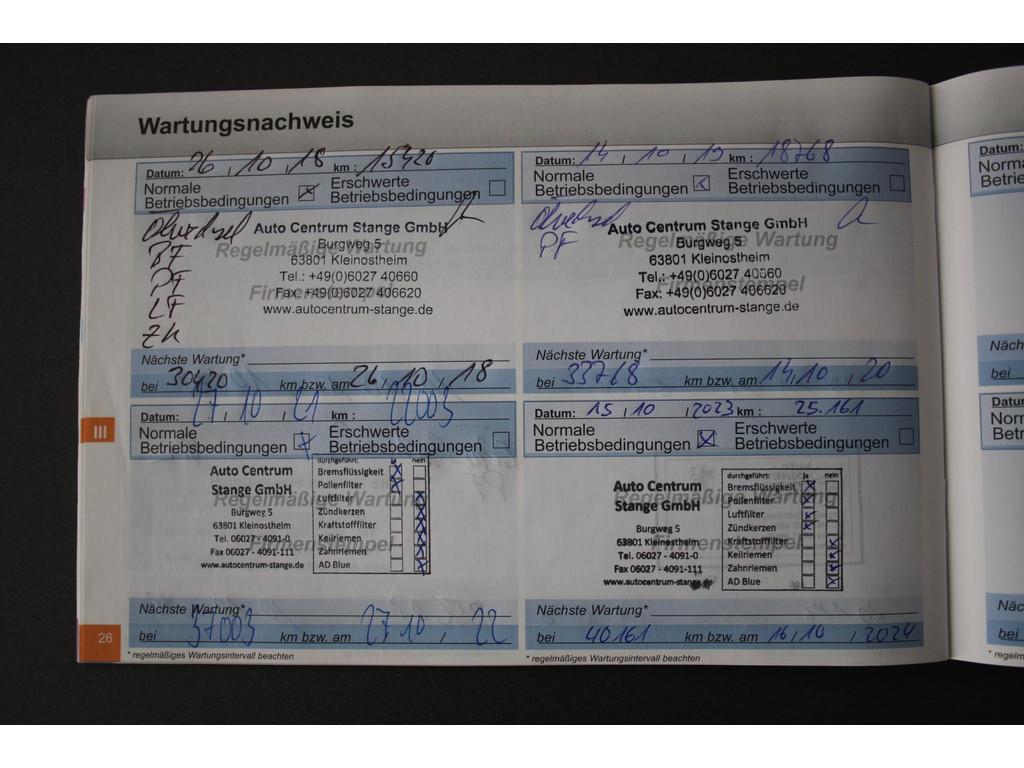 Wartungsnachweis
Datum: 26 , 10 , 18 km : 15420
Normale Betriebsbedingungen
Erschwerte Betriebsbedingungen
Ölwechsel
BF
PF
LF
ZK
Auto Centrum Stange GmbH
Regelmäßige Wartung
Burgweg 5
63801 Kleinostheim
Tel.: +49(0)6027 40660
Firmenstempel
Fax: +49(0)6027 406620
www.autocentrum-stange.de
Nächste Wartung*
bei 30420 km bzw. am 26, 10 , 18
Datum: 14 , 10 , 19 km : 18768
Normale Betriebsbedingungen
Erschwerte Betriebsbedingungen
Ölwechsel
PF
Auto Centrum Stange GmbH
Regelmäßige Wartung
Burgweg 5
63801 Kleinostheim
Tel.: +49(0)6027 40660
Firmenstempel
Fax: +49(0)6027 406620
www.autocentrum-stange.de
Nächste Wartung*
bei 33768 km bzw. am 14, 10 , 20
III
Datum: 27 , 10 , 21 km : 22003
Normale Betriebsbedingungen
Erschwerte Betriebsbedingungen
Auto Centrum
Stange GmbH
Regelmäßige Wartung
Burgweg 5
63801 Kleinostheim
Tel. 06027 - 4091-0
Firmenstempel
Fax 06027 - 4091-111
www.autocentrum-stange.de
durchgeführt: ja nein
Bremsflüssigkeit X
Pollenfilter X
Luftfilter X
Zündkerzen X
Kraftstofffilter X
Keilriemen X
Zahnriemen X
AD Blue X
Nächste Wartung*
bei 37003 km bzw. am 27 10 , 22
* regelmäßiges Wartungsintervall beachten
Datum: 15 , 10 , 2023 km : 25.161
Normale Betriebsbedingungen
Erschwerte Betriebsbedingungen
Auto Centrum
Stange GmbH
Regelmäßige Wartung
Burgweg 5
63801 Kleinostheim
Tel. 06027 - 4091-0
Firmenstempel
Fax 06027 - 4091-111
www.autocentrum-stange.de
durchgeführt: ja nein
Bremsflüssigkeit X
Pollenfilter X
Luftfilter X
Zündkerzen X
Kraftstofffilter X
Keilriemen X
Zahnriemen X
AD Blue X
Nächste Wartung*
bei 40161 km bzw. am 16, 10 , 2024
* regelmäßiges Wartungsintervall beachten
26
Datum:
bei
Datum:
bei